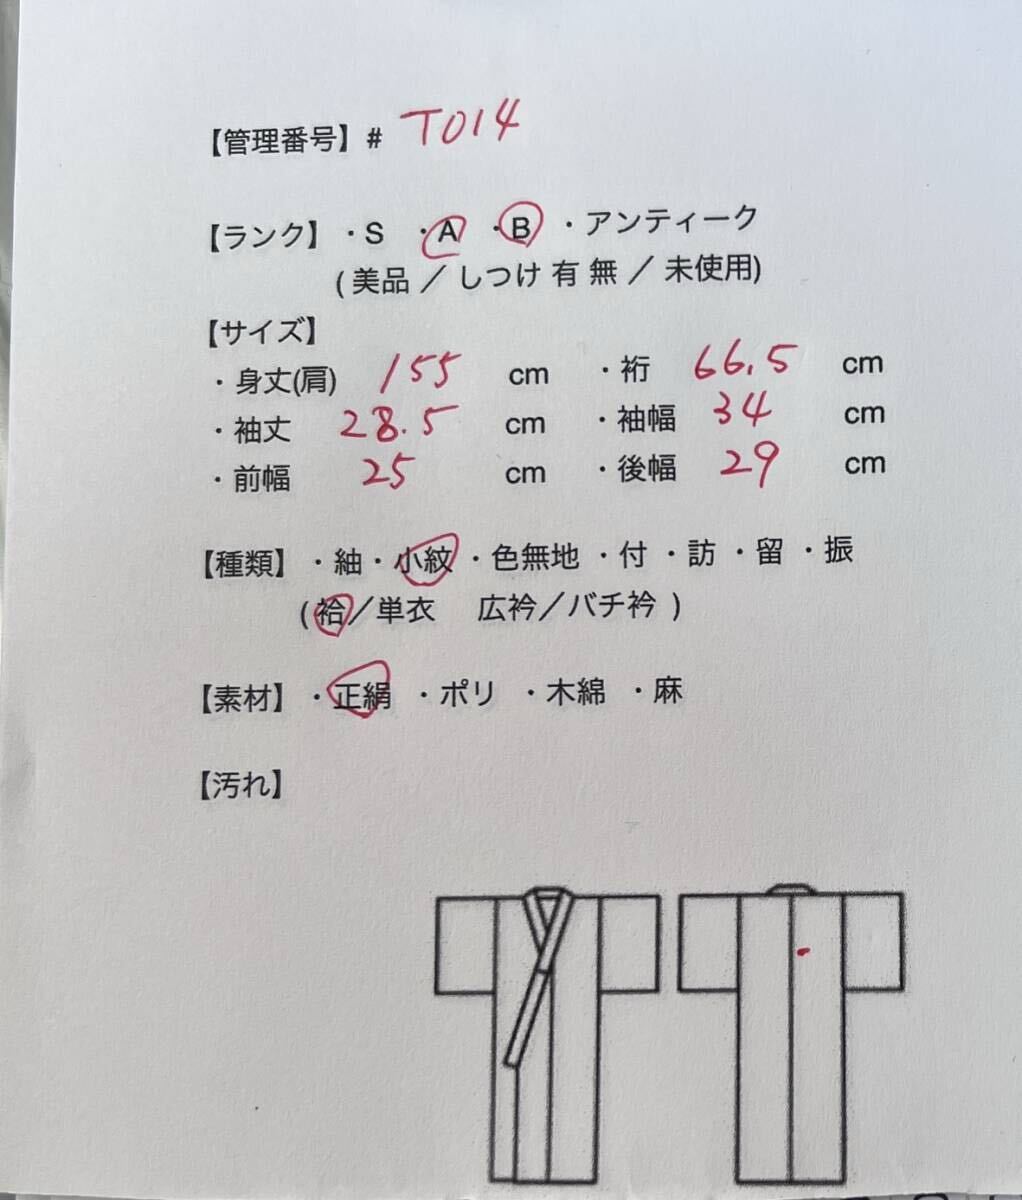 【管理番号】# T014
【ランク】・S ・A ・B ・アンティーク
(美品 ／ しつけ 有 無 ／ 未使用)
【サイズ】
・身丈(肩) 155 cm ・裄 66.5 cm
・袖丈 28.5 cm ・袖幅 34 cm
・前幅 25 cm ・後幅 29 cm
【種類】・紬・小紋・色無地・付・訪・留・振
(袷／単衣 広衿／バチ衿)
【素材】・正絹 ・ポリ ・木綿 ・麻
【汚れ】